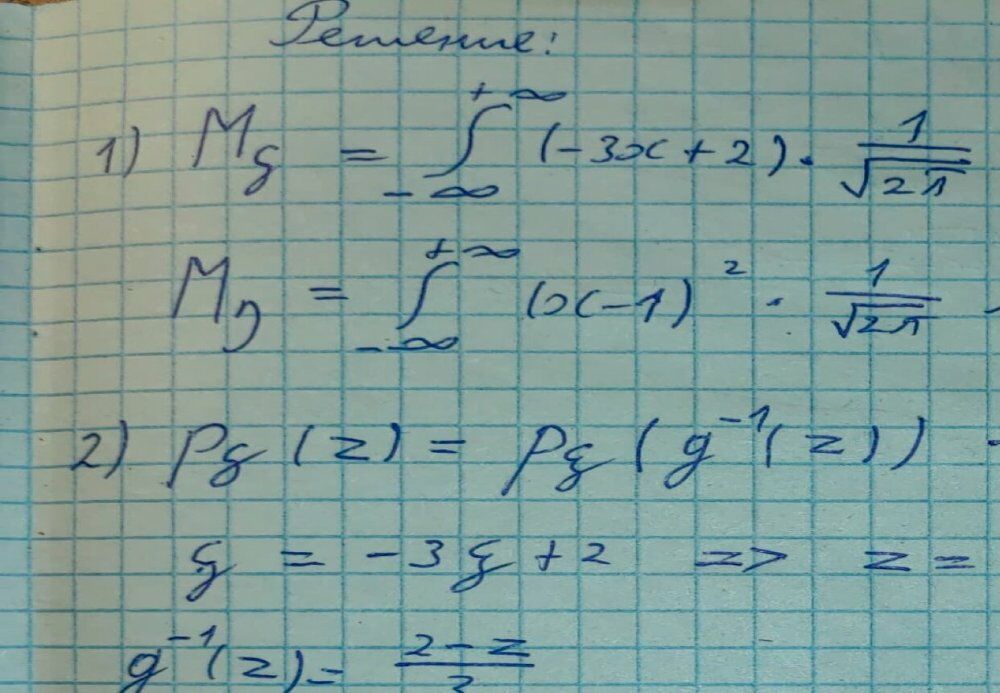 Решение:
1) Mξ = ∫_{-∞}^{+∞} (-3x+2) · 1/√2π
Mη = ∫_{-∞}^{+∞} (x-1)² · 1/√2π ·
2) pξ(z) = pξ(g⁻¹(z)) ·
ξ = -3ξ+2 => z =
g⁻¹(z) = 2-z/3